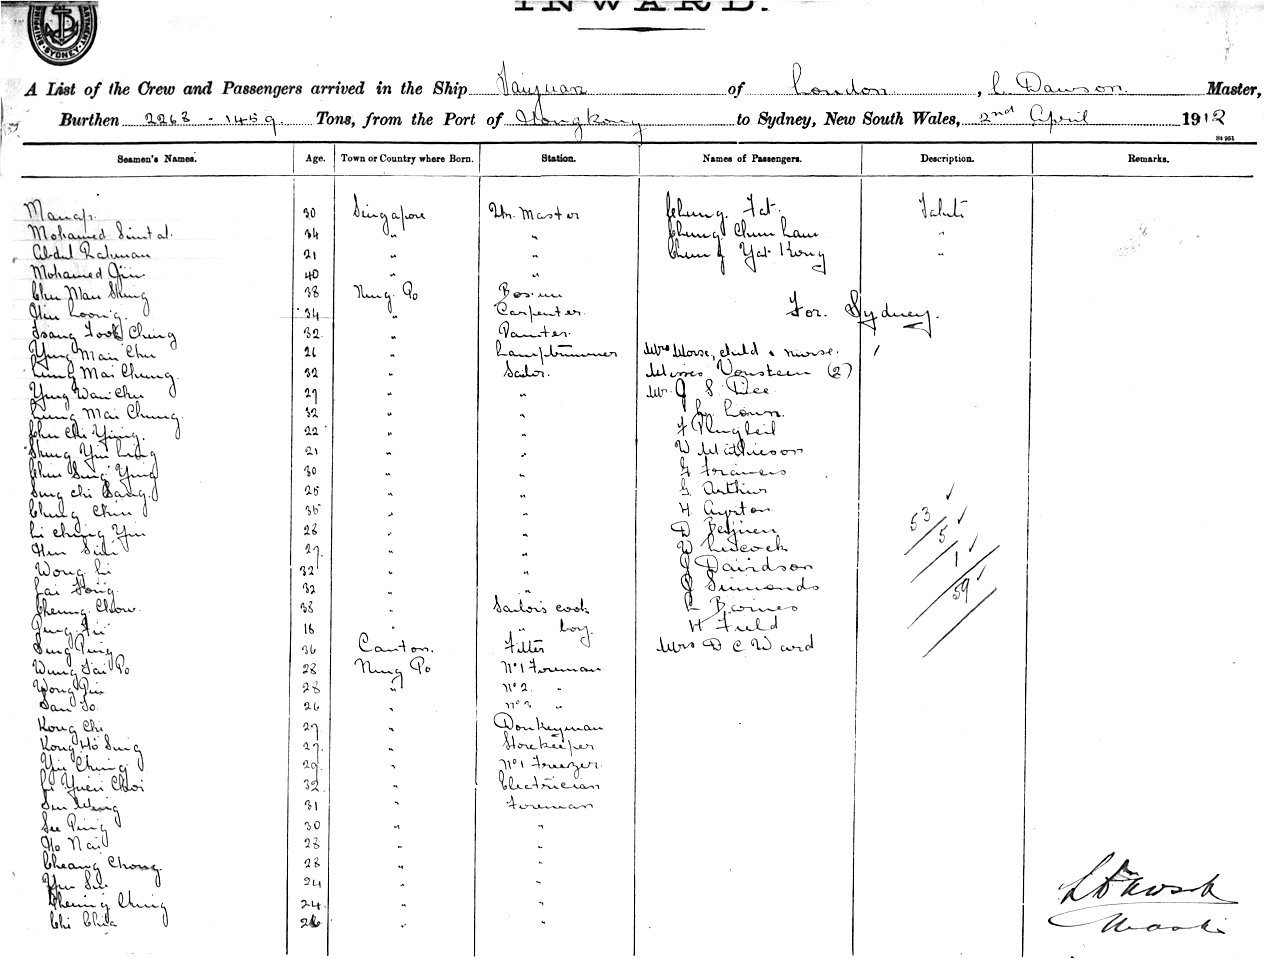 INWARD.
SYDNEY
A List of the Crew and Passengers arrived in the Ship Taiyuan of London, L. Dawson Master,
Burthen 2268 - 1459 Tons, from the Port of Hongkong to Sydney, New South Wales, 2nd April 1912
St 951
Seamen's Names. Age. Town or Country where Born. Station. Names of Passengers. Description. Remarks.
Manap 30 Singapore Qr. Master Chung Fat. Tahiti
Mohamed 34 " " Chung Chun Lam "
Abdul Rahman 21 " " Chung Yat Kong "
Mohamed 40 " "
Chu Man Shing 38 Ning Po Bos'un
Loong 34 " Carpenter For Sydney.
Tsang Fook Ching 32 " Painter
Yung Man Chu 26 " Lamptrimmer Mrs Morse, child & nurse.
Lung Mai Chung 32 " Sailor. Misses (2)
Yung Wan Chu 27 " " Mr. J S. Dee
Lung Mai Chung. 32 " "
Chu Chi Ying. 22 " " F
Shung Yui Ling 21 " " W Mathieson
Chu Sing Ying 30 " " G Francis
Sung Chi Sang. 25 " " G Arthur
Chung Chiu 35 " " H Ayrton 53
Li Ching Yui 28 " " D 5
27 " " W 1
Wong Li 32 " " J Davidson
Lai Fong 32 " " J Simmonds 59
Cheung Chow. 38 " Sailors cook L Barnes
16 " " boy. H Field
Sung Ping 36 Canton. Fitter Mrs D C Ward
Wung Tai Po 28 Ning Po No1 Foreman
Wong 28 " No 2. "
San So. 26 " No 3 "
Kong Chi 27 " Donkeyman
Kong Ho Sing 27 " Storekeeper
Yiu Ching 29 " No1 Freezer.
Li Yuen Choi 32 " Electrician
31 " Foreman
See Ping 30 " "
Ho Nai 28 " "
Cheang Chong 28 " "
24 " "
Cheung Chung 24 " "
Chi Chia 26 " "
L Dawson
Master